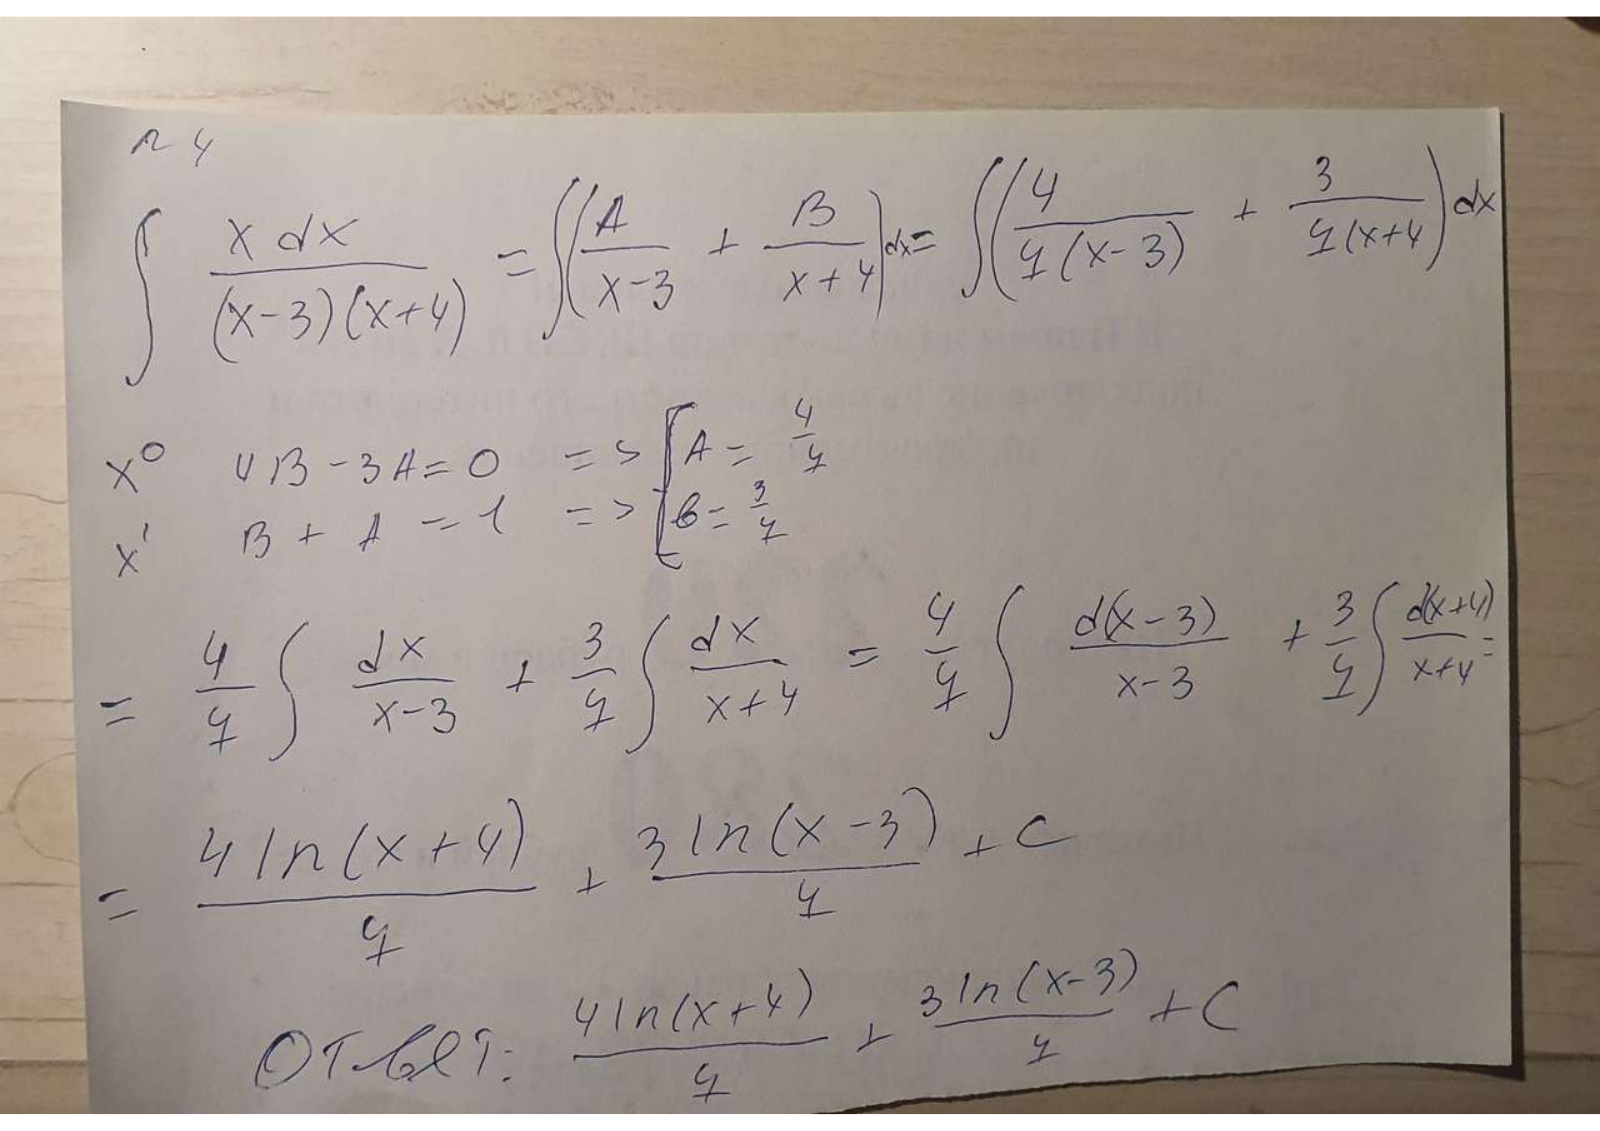 № 4
∫ x dx / (x-3)(x+4) = ∫(A/(x-3) + B/(x+4))dx = ∫(4/(7(x-3)) + 3/(7(x+4)) dx
x⁰ 4B - 3A = 0 => [A = 4/7
x¹ B + A = 1 => [B = 3/7
= 4/7 ∫ dx/(x-3) + 3/7 ∫ dx/(x+4) = 4/7 ∫ d(x-3)/(x-3) + 3/7 ∫ d(x+4)/(x+4) =
= 4 ln(x+4)/7 + 3 ln(x-3)/7 + C
Ответ: 4 ln(x+4)/7 + 3 ln(x-3)/7 + C